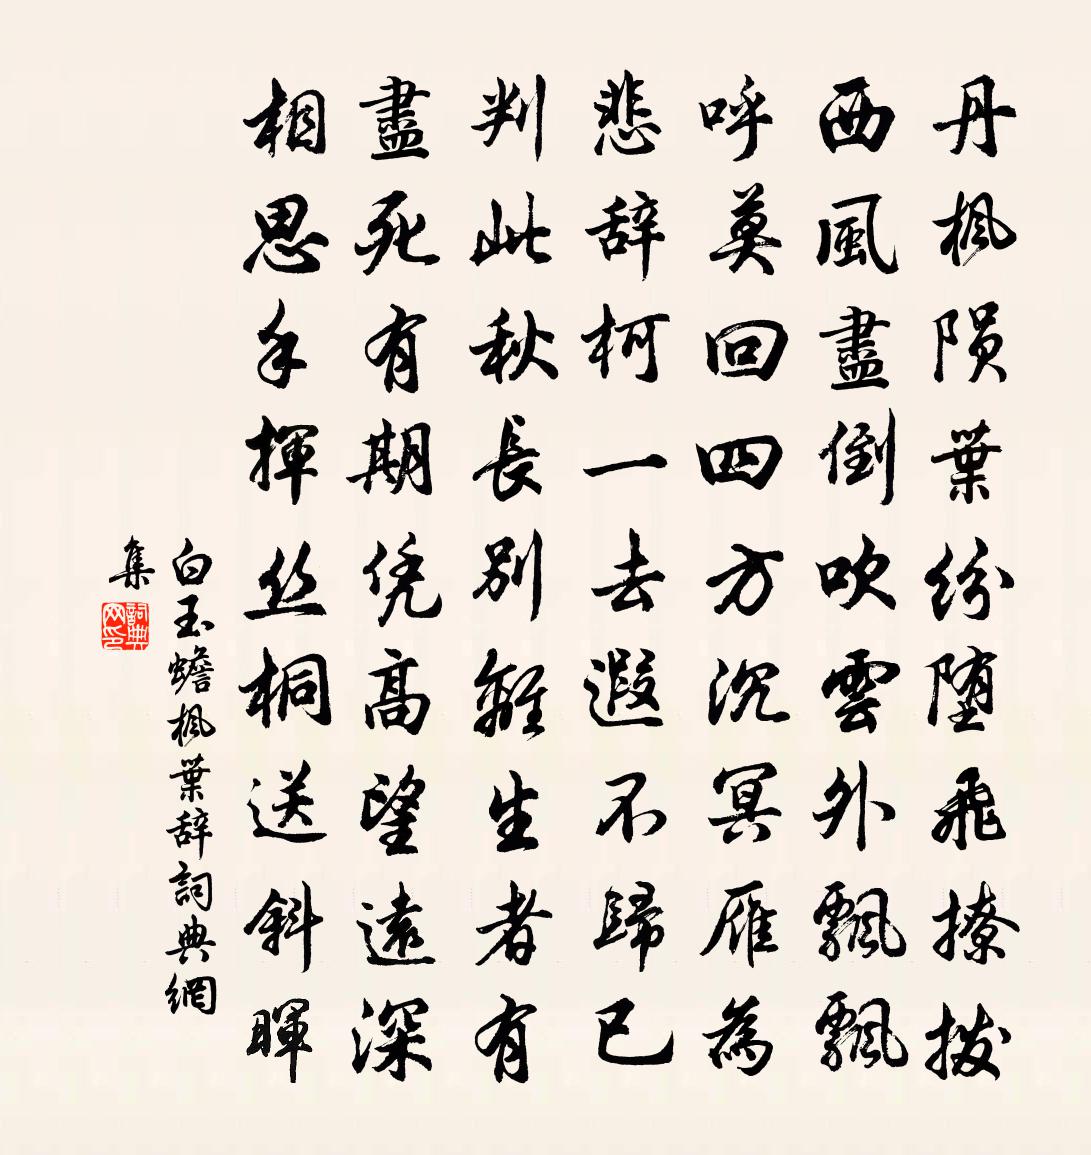 丹楓隕葉紛堕飛撩拨
西風盡倒吹雲外飄飄
呼莫回四方沉冥雁為
悲辞柯一去遐不歸已
判此秋長別離生者有
盡死有期凭高望遠深
相思手揮丝桐送斜暉
白玉蟾楓葉辞詞典網
集
詞典网印